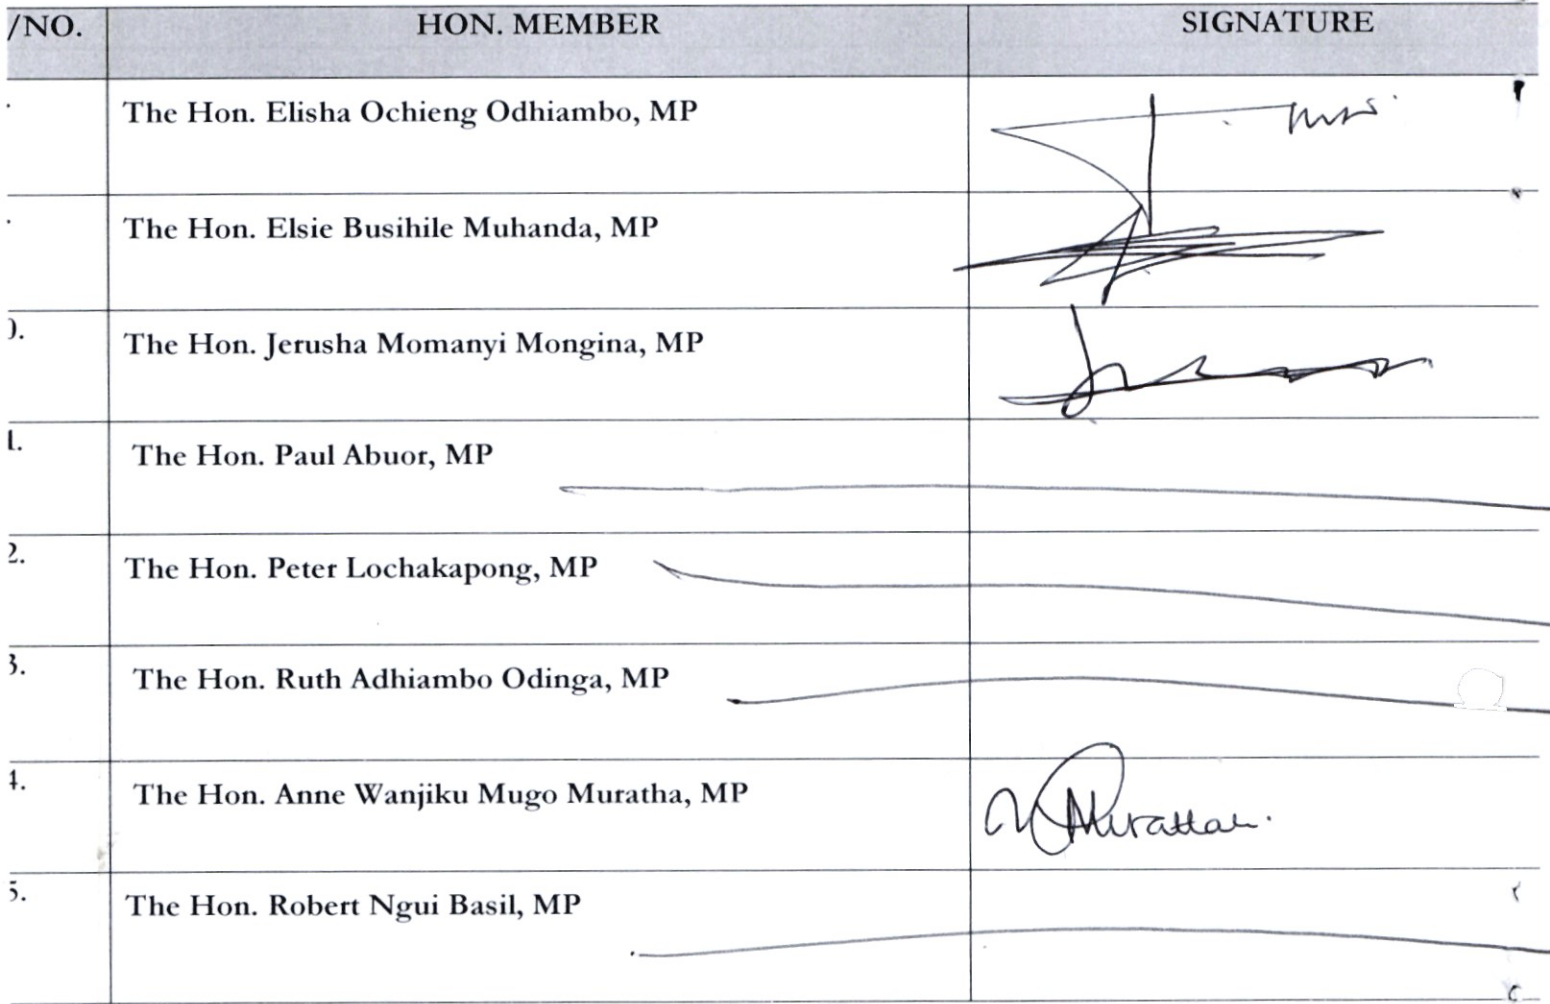 /NO. HON. MEMBER SIGNATURE
. The Hon. Elisha Ochieng Odhiambo, MP
. The Hon. Elsie Busihile Muhanda, MP
). The Hon. Jerusha Momanyi Mongina, MP
1. The Hon. Paul Abuor, MP
2. The Hon. Peter Lochakapong, MP
3. The Hon. Ruth Adhiambo Odinga, MP
4. The Hon. Anne Wanjiku Mugo Muratha, MP
5. The Hon. Robert Ngui Basil, MP